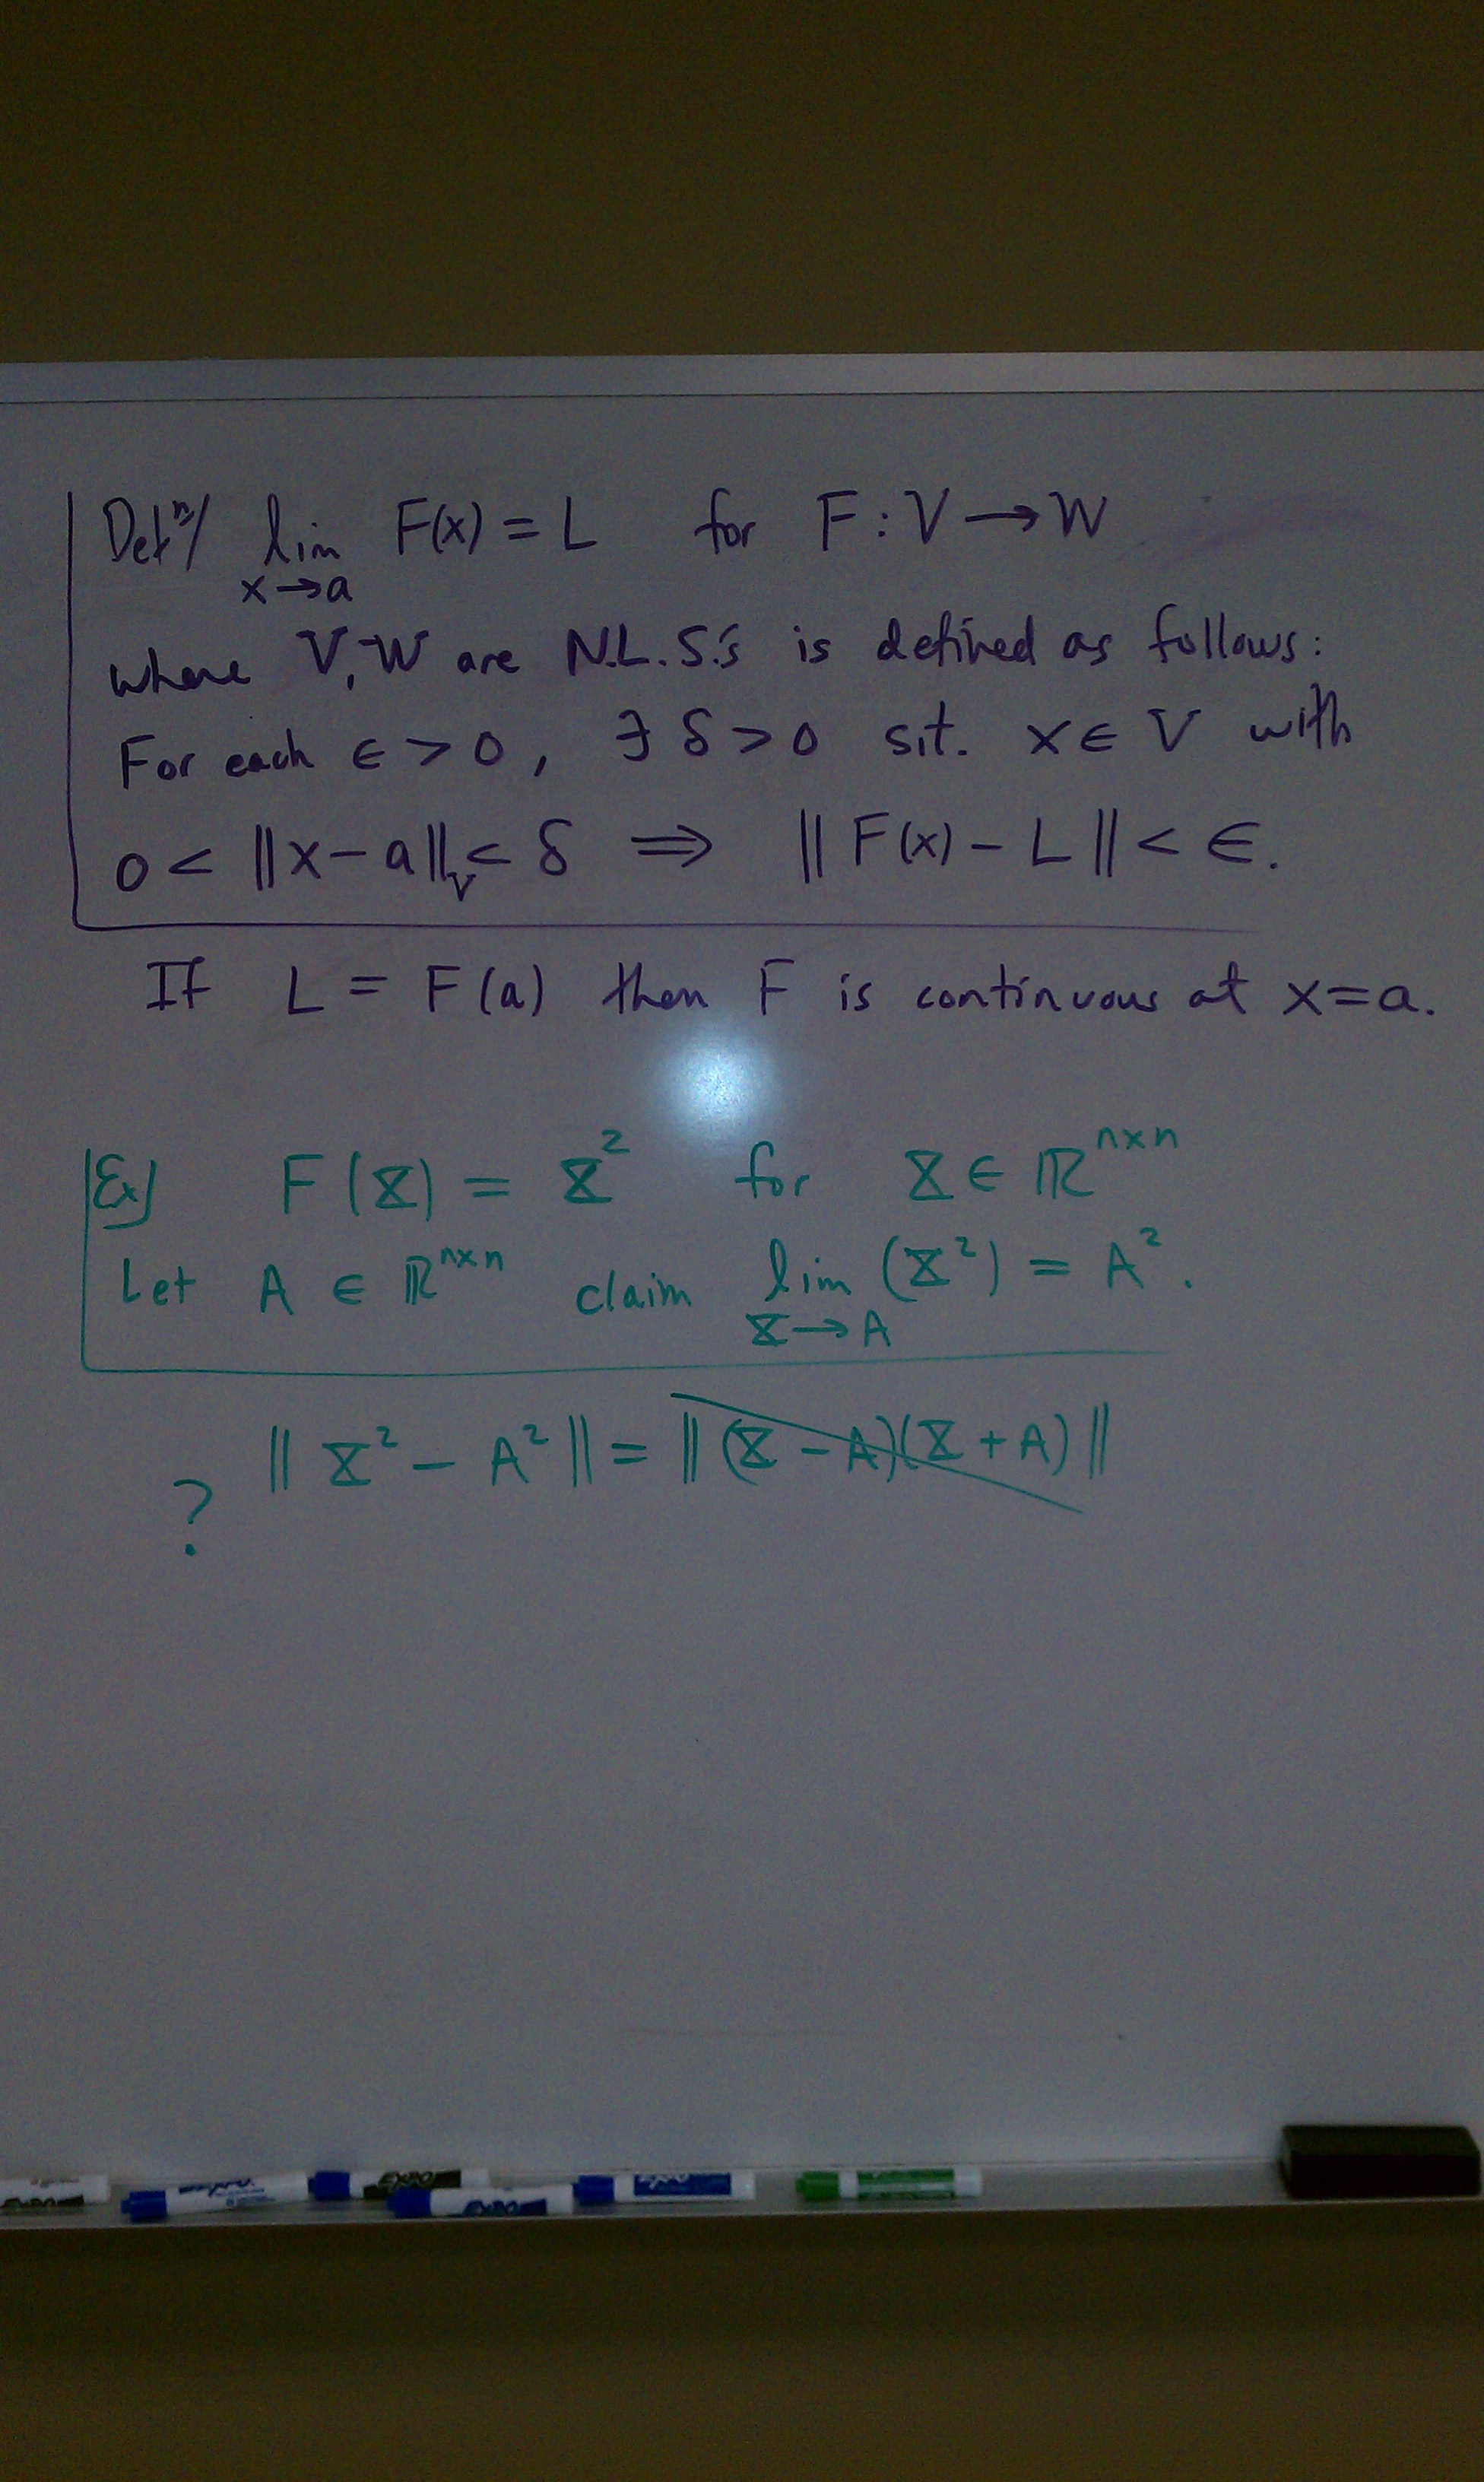 Defⁿ/ lim F(x) = L for F : V → W
x→a
where V, W are N.L.S.'s is defined as follows:
For each ϵ > 0, ∃ δ > 0 s.t. x ∈ V with
0 < ||x - a||_V < δ ⇒ || F(x) - L || < ϵ.
If L = F(a) then F is continuous at x=a.
Ex] F(X) = X² for X ∈ ℝⁿˣⁿ
Let A ∈ ℝⁿˣⁿ claim lim (X²) = A².
X→A
|| X² - A² || = || (X - A)(X + A) ||
?
EXPO
EXPO
EXPO